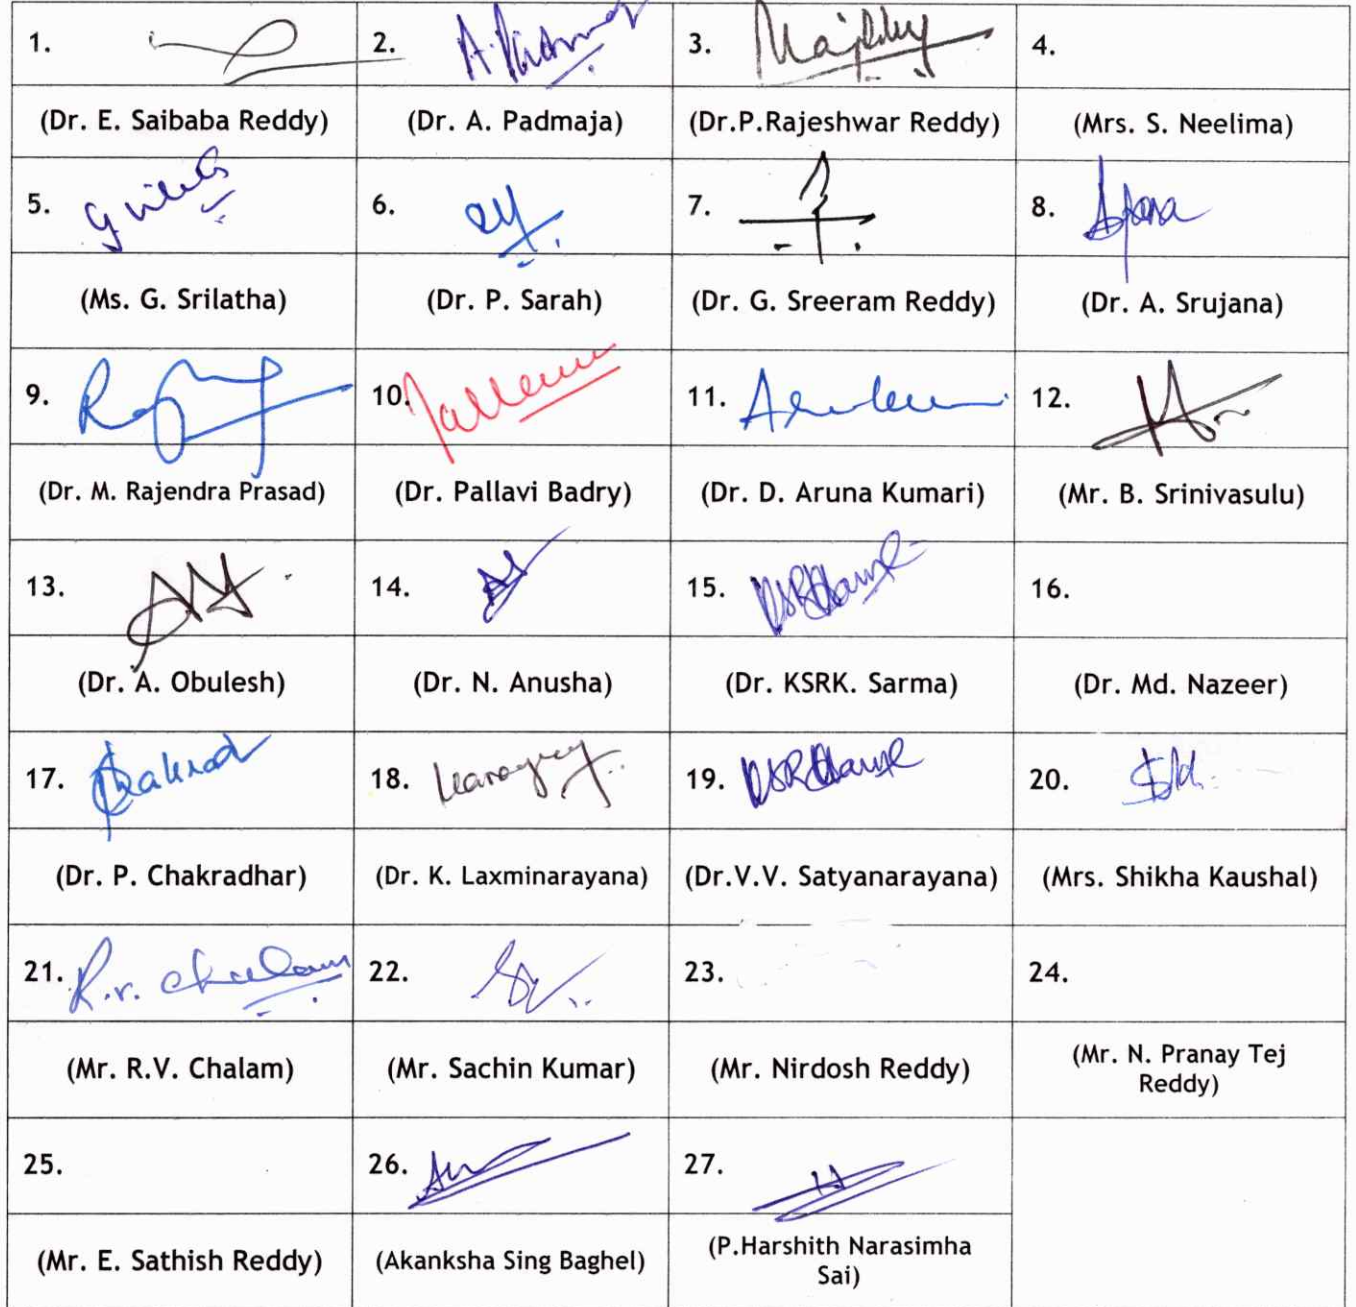 1. 2. A. Padmaja 3. 4.
(Dr. E. Saibaba Reddy) (Dr. A. Padmaja) (Dr.P.Rajeshwar Reddy) (Mrs. S. Neelima)
5. 6. 7. 8.
(Ms. G. Srilatha) (Dr. P. Sarah) (Dr. G. Sreeram Reddy) (Dr. A. Srujana)
9. 10. 11. 12.
(Dr. M. Rajendra Prasad) (Dr. Pallavi Badry) (Dr. D. Aruna Kumari) (Mr. B. Srinivasulu)
13. 14. 15. 16.
(Dr. A. Obulesh) (Dr. N. Anusha) (Dr. KSRK. Sarma) (Dr. Md. Nazeer)
17. 18. 19. 20.
(Dr. P. Chakradhar) (Dr. K. Laxminarayana) (Dr.V.V. Satyanarayana) (Mrs. Shikha Kaushal)
21. R.V. Chalam 22. 23. 24.
(Mr. R.V. Chalam) (Mr. Sachin Kumar) (Mr. Nirdosh Reddy) (Mr. N. Pranay Tej
Reddy)
25. 26. 27.
(Mr. E. Sathish Reddy) (Akanksha Sing Baghel) (P.Harshith Narasimha
Sai)